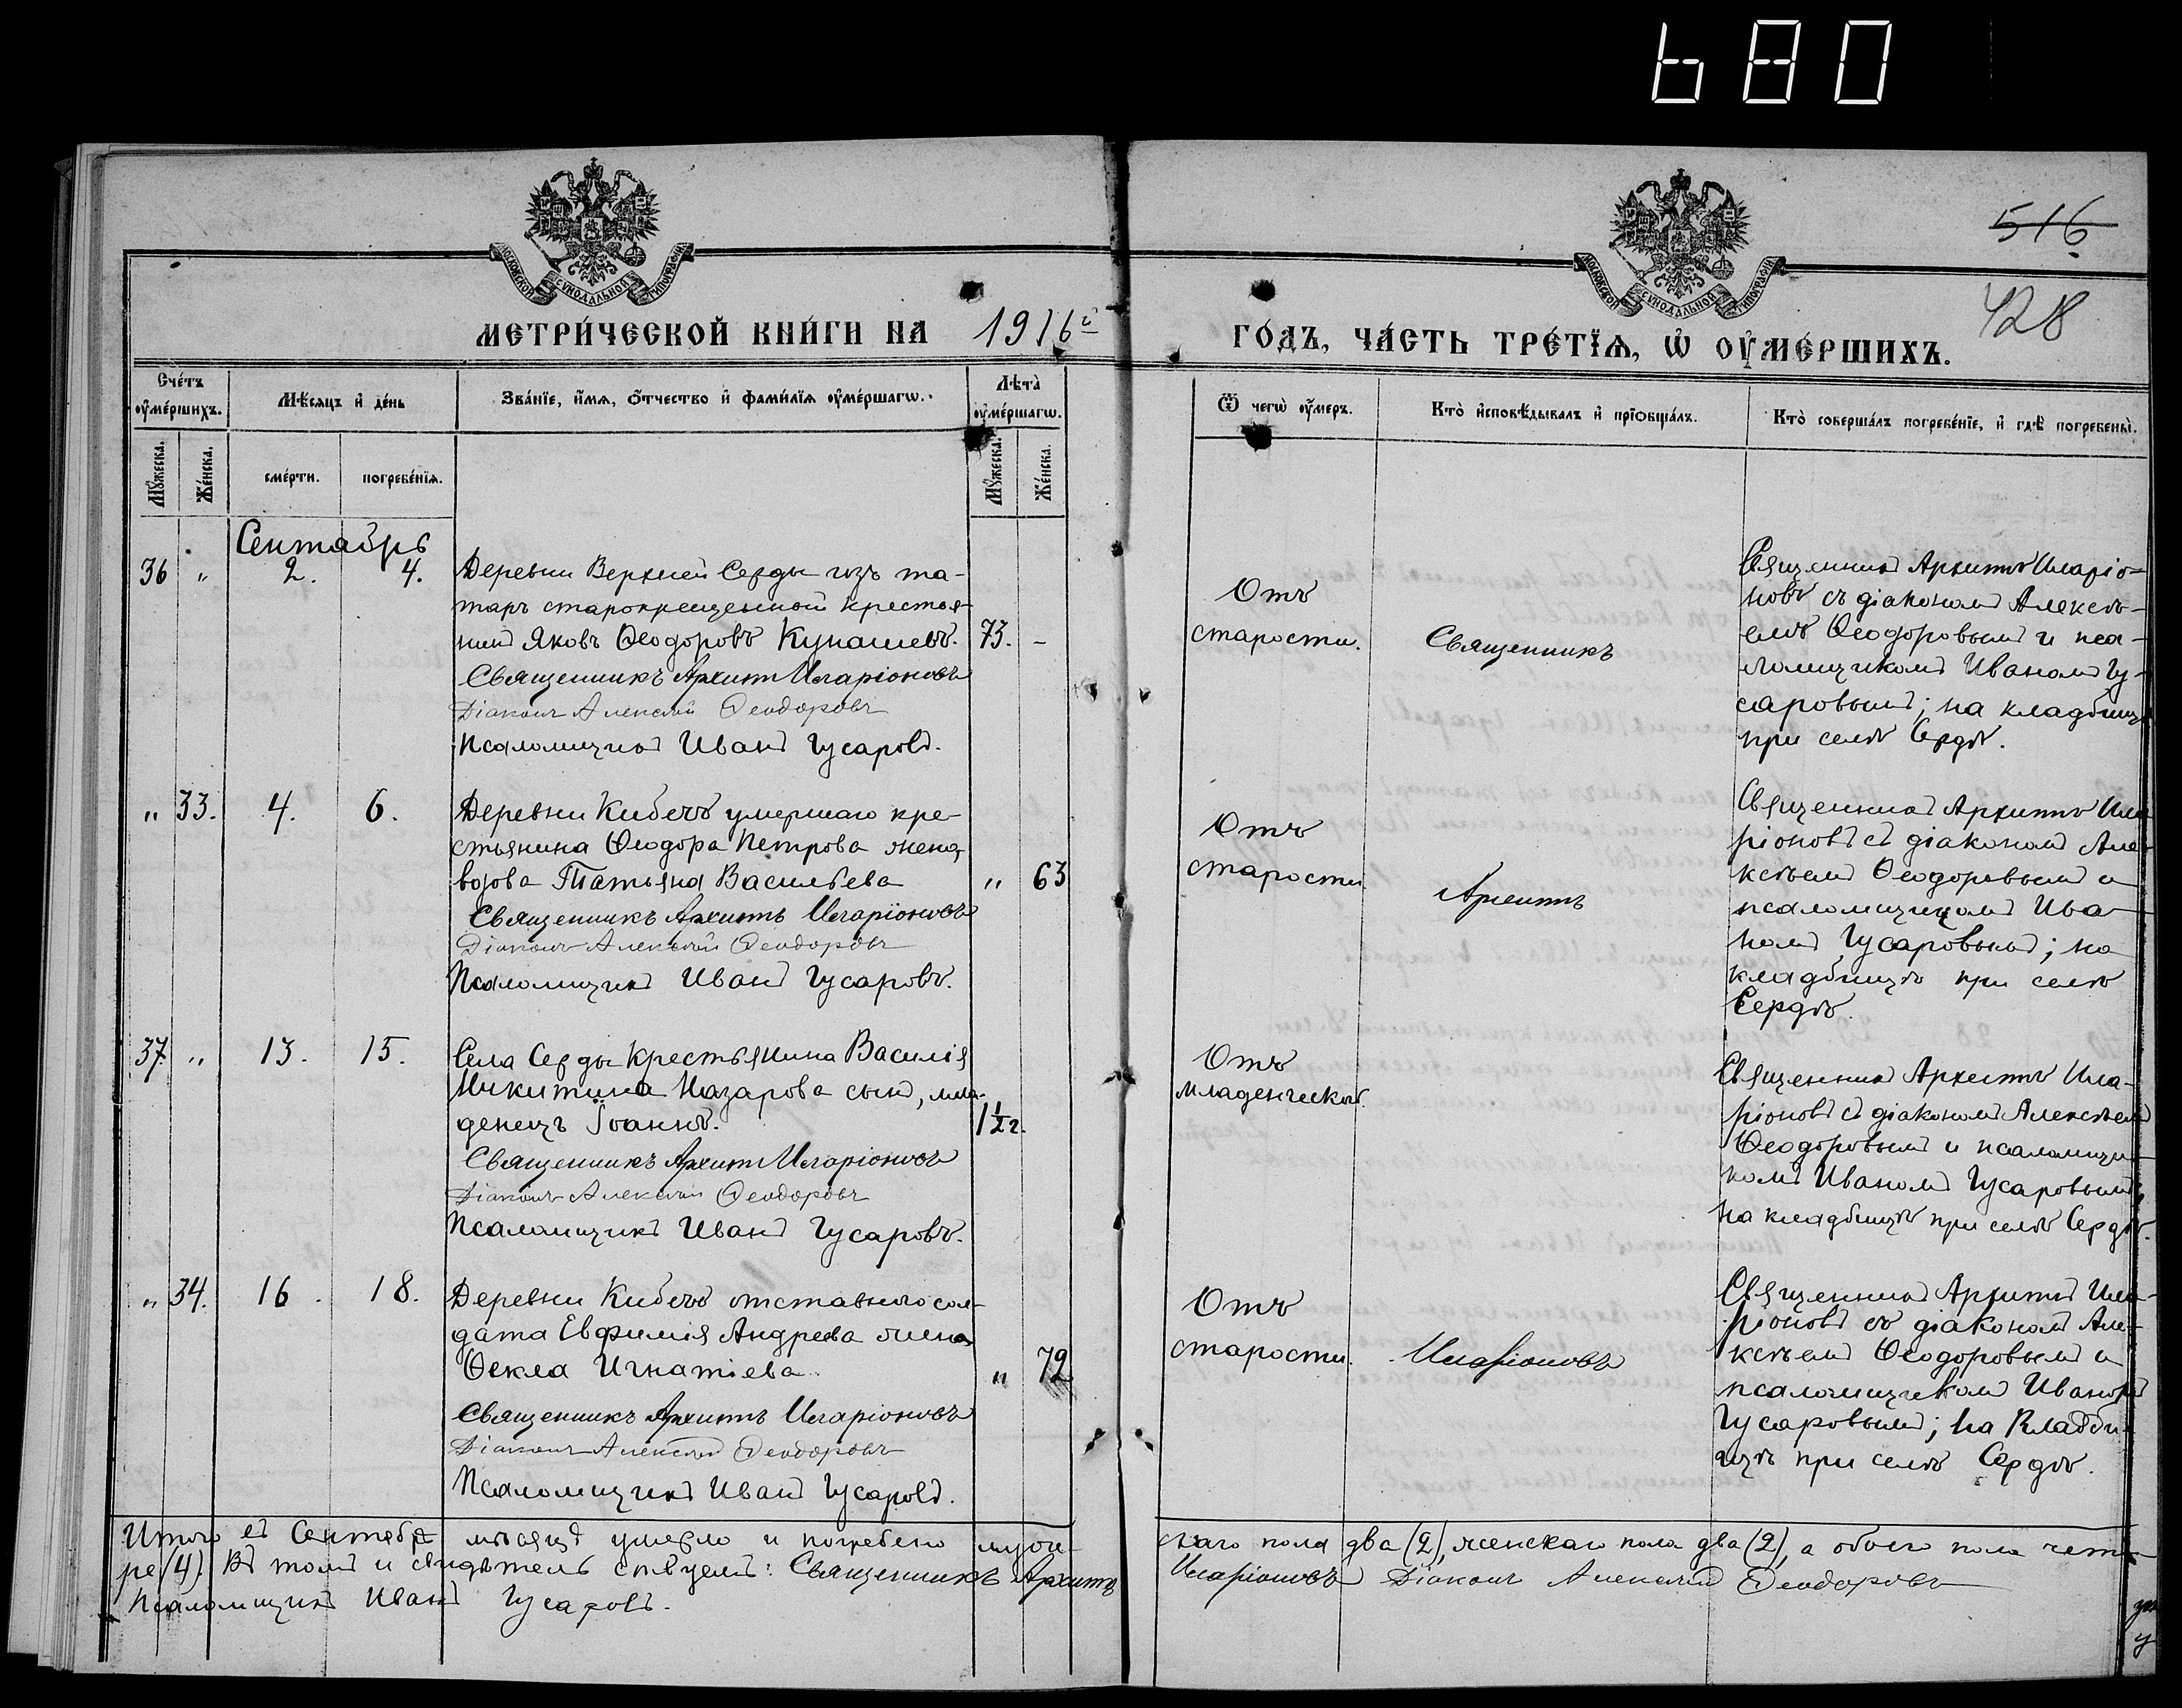 680
516
428
МОСКОВСКОЙ СУНОДАЛЬНОЙ ТИПОГРАФІИ
МОСКОВСКОЙ СУНОДАЛЬНОЙ ТИПОГРАФІИ
МЕТРИ́ЧЕСКОЙ КНИ́ГИ НА 1916й ГО́ДЪ, ЧА́СТЬ ТРЕ́ТЇѦ, Ѡ ОУ҆МЕ́РШИХЪ.
Сче́тъ оу҆ме́ршихъ.
Мꙋ́жеска.
Же́нска.
Мѣ́сяцъ и҆ де́нь
сме́рти.
погребе́нїѧ.
Зва́нїе, и҆́мѧ, ѻ҆́тчество и҆ фами́лїѧ оу҆ме́ршагѡ.
Лѣ́та оу҆ме́ршагѡ.
Мꙋ́жеска.
Же́нска.
Ѿ чегѡ̀ оу҆́меръ.
Кто̀ и҆сповѣ́дывалъ и҆ прїѡбща́лъ.
Кто̀ соверша́лъ погребе́нїе, и҆ гдѣ̀ погребены̀.
Сентябрь
36 „ 2. 4.
Деревни Верхней Серды изъ та-
таръ старокрещенный крестья-
нинъ Яковъ Ѳеодоровъ Кунашевъ. 73. -
Священникъ Архипъ Иларіоновъ
Діаконъ Алексій Ѳеодоровъ
Псаломщикъ Иванъ Гусаровъ.
Отъ
старости.
Священникъ
Священникъ Архипъ Иларіо-
новъ съ діакономъ Алексѣ-
емъ Ѳеодоровымъ и пса-
ломщикомъ Иваномъ Гу-
саровымъ; на кладбищѣ
при селѣ Сердѣ.
„ 33. 4. 6.
Деревни Кибечь умершаго кре-
стьянина Ѳеодора Петрова жена,
вдова Татьяна Васильева „ 63
Священникъ Архипъ Иларіоновъ
Діаконъ Алексій Ѳеодоровъ
Псаломщикъ Иванъ Гусаровъ.
Отъ
старости.
Архипъ
Священникъ Архипъ Ила
ріоновъ съ діакономъ Але-
ксѣемъ Ѳеодоровымъ и
псаломщикомъ Ива-
номъ Гусаровымъ; на
кладбищѣ при селѣ
Сердѣ.
37. „ 13. 15.
Села Серды крестьянина Василія
Никитина Назарова сынъ, мла-
денецъ Іоаннъ. 1½ г.
Священникъ Архипъ Иларіоновъ
Діаконъ Алексій Ѳеодоровъ
Псаломщикъ Иванъ Гусаровъ.
Отъ
младенческой.
Священникъ Архипъ Ила-
ріоновъ съ діакономъ Алексѣемъ
Ѳеодоровымъ и псаломщи-
комъ Иваномъ Гусаровымъ;
на кладбищѣ при селѣ Сердѣ.
„ 34. 16. 18.
Деревни Кибечь отставного сол-
дата Евфимія Андреева жена,
Ѳекла Игнатіева „ 72
Священникъ Архипъ Иларіоновъ
Діаконъ Алексій Ѳеодоровъ
Псаломщикъ Иванъ Гусаровъ.
Отъ
старости.
Иларіоновъ
Священникъ Архипъ Ила-
ріоновъ съ діакономъ Але-
ксѣемъ Ѳеодоровымъ и
псаломщикомъ Иваномъ
Гусаровымъ; на кладби-
щѣ при селѣ Сердѣ.
Итого въ Сентябрѣ мѣсяцѣ умерло и погребено мужескаго пола два (2), женскаго пола два (2), а обоего пола четы-
ре (4). Въ томъ и свидѣтельствуемъ: Священникъ Архипъ Иларіоновъ Діаконъ Алексій Ѳеодоровъ
Псаломщикъ Иванъ Гусаровъ.